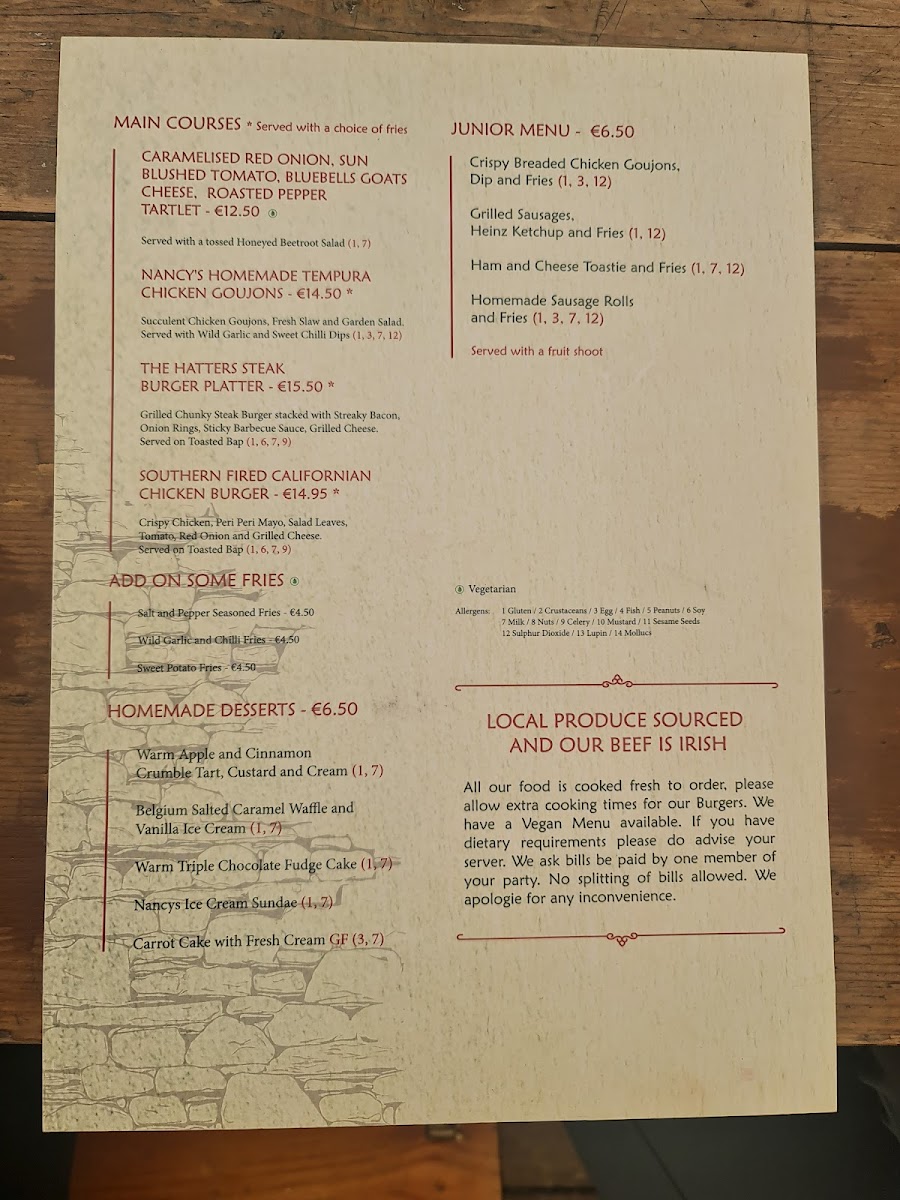 MAIN COURSES * Served with a choice of fries
CARAMELISED RED ONION, SUN
BLUSHED TOMATO, BLUEBELLS GOATS
CHEESE, ROASTED PEPPER
TARTLET - €12.50
Served with a tossed Honeyed Beetroot Salad (1, 7)
NANCY'S HOMEMADE TEMPURA
CHICKEN GOUJONS - €14.50 *
Succulent Chicken Goujons, Fresh Slaw and Garden Salad.
Served with Wild Garlic and Sweet Chilli Dips (1, 3, 7, 12)
THE HATTERS STEAK
BURGER PLATTER - €15.50 *
Grilled Chunky Steak Burger stacked with Streaky Bacon,
Onion Rings, Sticky Barbecue Sauce, Grilled Cheese.
Served on Toasted Bap (1, 6, 7, 9)
SOUTHERN FIRED CALIFORNIAN
CHICKEN BURGER - €14.95 *
Crispy Chicken, Peri Peri Mayo, Salad Leaves,
Tomato, Red Onion and Grilled Cheese.
Served on Toasted Bap (1, 6, 7, 9)
ADD ON SOME FRIES
Salt and Pepper Seasoned Fries - €4.50
Wild Garlic and Chilli Fries - €4.50
Sweet Potato Fries - €4.50
HOMEMADE DESSERTS - €6.50
Warm Apple and Cinnamon
Crumble Tart, Custard and Cream (1, 7)
Belgium Salted Caramel Waffle and
Vanilla Ice Cream (1, 7)
Warm Triple Chocolate Fudge Cake (1, 7)
Nancys Ice Cream Sundae (1, 7)
Carrot Cake with Fresh Cream GF (3, 7)
JUNIOR MENU - €6.50
Crispy Breaded Chicken Goujons,
Dip and Fries (1, 3, 12)
Grilled Sausages,
Heinz Ketchup and Fries (1, 12)
Ham and Cheese Toastie and Fries (1, 7, 12)
Homemade Sausage Rolls
and Fries (1, 3, 7, 12)
Served with a fruit shoot
Vegetarian
Allergens: 1 Gluten / 2 Crustaceans / 3 Egg / 4 Fish / 5 Peanuts / 6 Soy
7 Milk / 8 Nuts / 9 Celery / 10 Mustard / 11 Sesame Seeds
12 Sulphur Dioxide / 13 Lupin / 14 Mollucs
LOCAL PRODUCE SOURCED
AND OUR BEEF IS IRISH
All our food is cooked fresh to order, please
allow extra cooking times for our Burgers. We
have a Vegan Menu available. If you have
dietary requirements please do advise your
server. We ask bills be paid by one member of
your party. No splitting of bills allowed. We
apologie for any inconvenience.